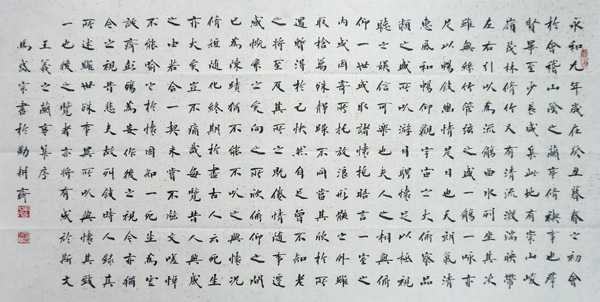 永和九年歲在癸丑暮春之初會
於會稽山陰之蘭亭修禊事也群
賢畢至少長咸集此地有崇山峻
嶺茂林修竹又有清流激湍映帶
左右引以為流觴曲水列坐其次
雖無絲竹管弦之盛一觴一詠亦
足以暢敘幽情是日也天朗氣清
惠風和暢仰觀宇宙之大俯察品
類之盛所以游目騁懷足以極視
聽之娛信可樂也夫人之相與俯
仰一世或取諸懷抱晤言一室之
內或因寄所托放浪形骸之外雖
取捨萬殊靜躁不同當其欣於所
遇暫得於己快然自足曾不知老
之將至及其所之既倦情隨事遷
感慨係之矣向之所欣俯仰之間
已為陳跡猶不能不以之興懷況
修短隨化終期於盡古人云死生
亦大矣豈不痛哉每覽昔人興感
之由若合一契未嘗不臨文嗟悼
不能喻之於懷固知一死生為虛
誕齊彭殤為妄作後之視今亦猶
今之視昔悲夫故列敘時人錄其
所述雖世殊事異所以興懷其致
一也後之覽者亦將有感於斯文
王羲之蘭亭集序
馬成宗書於勤耕齋